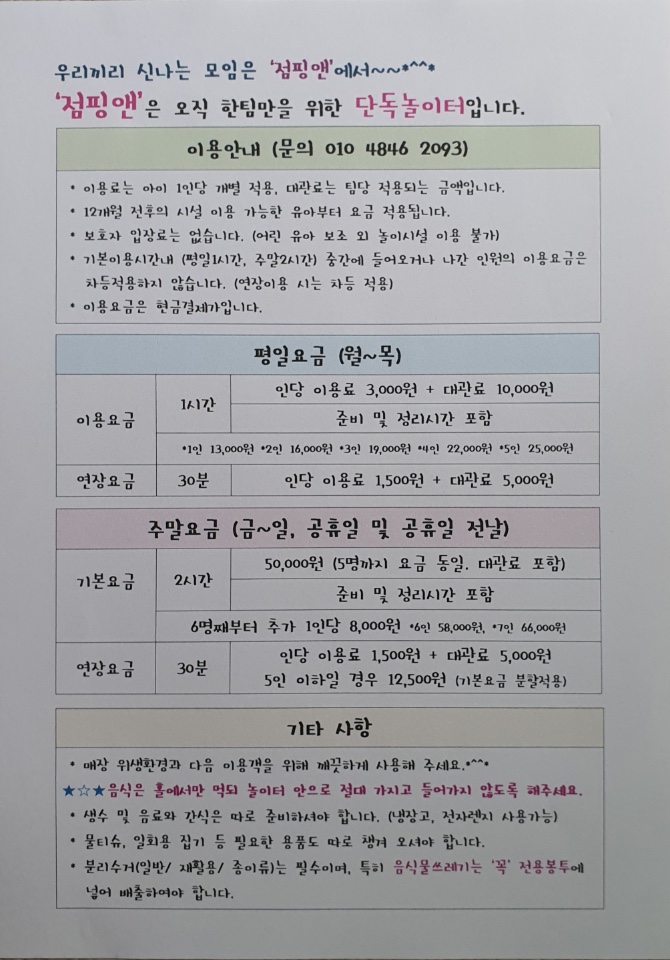 우리끼리 신나는 모임은 '점핑앤'에서~~*^^*
'점핑앤'은 오직 한팀만을 위한 단독놀이터입니다.
이용안내 (문의 010 4846 2093)
* 이용료는 아이 1인당 개별 적용, 대관료는 팀당 적용되는 금액입니다.
* 12개월 전후의 시설 이용 가능한 유아부터 요금 적용됩니다.
* 보호자 입장료는 없습니다. (어린 유아 보조 외 놀이시설 이용 불가)
* 기본이용시간내 (평일1시간, 주말2시간) 중간에 들어오거나 나간 인원의 이용요금은
차등적용하지 않습니다. (연장이용 시는 차등 적용)
* 이용요금은 현금결제가입니다.
평일요금 (월~목)
이용요금
1시간
인당 이용료 3,000원 + 대관료 10,000원
준비 및 정리시간 포함
*1인 13,000원 *2인 16,000원 *3인 19,000원 *4인 22,000원 *5인 25,000원
연장요금 30분 인당 이용료 1,500원 + 대관료 5,000원
주말요금 (금~일, 공휴일 및 공휴일 전날)
기본요금
2시간
50,000원 (5명까지 요금 동일. 대관료 포함)
준비 및 정리시간 포함
6명째부터 추가 1인당 8,000원 *6인 58,000원, *7인 66,000원
연장요금
30분
인당 이용료 1,500원 + 대관료 5,000원
5인 이하일 경우 12,500원 (기본요금 분할적용)
기타 사항
* 매장 위생환경과 다음 이용객을 위해 깨끗하게 사용해 주세요.*^^*
★☆★음식은 홀에서만 먹되 놀이터 안으로 절대 가지고 들어가지 않도록 해주세요.
* 생수 및 음료와 간식은 따로 준비하셔야 합니다. (냉장고, 전자렌지 사용가능)
* 물티슈, 일회용 집기 등 필요한 용품도 따로 챙겨 오셔야 합니다.
* 분리수거(일반/ 재활용/ 종이류)는 필수이며, 특히 음식물쓰레기는 '꼭' 전용봉투에
넣어 배출하여야 합니다.